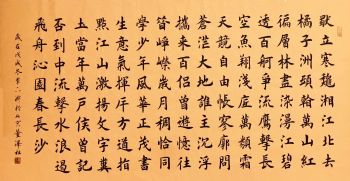 獨立寒穐湘江北去
橘子洲頭看萬山紅
徧層林盡染漫江碧
透百舸爭流鷹擊長
空魚翔淺底萬類霜
天競自由悵寥廓問
蒼茫大地誰主沉浮
攜來百侶曾遊憶往
昔崢嶸歲月稠恰同
學少年風華正茂書
生意氣揮斥方遒指
點江山激揚文字糞
土當年萬戶侯曾記
否到中流擊水浪遏
飛舟沁園春長沙
歲在戊戌冬